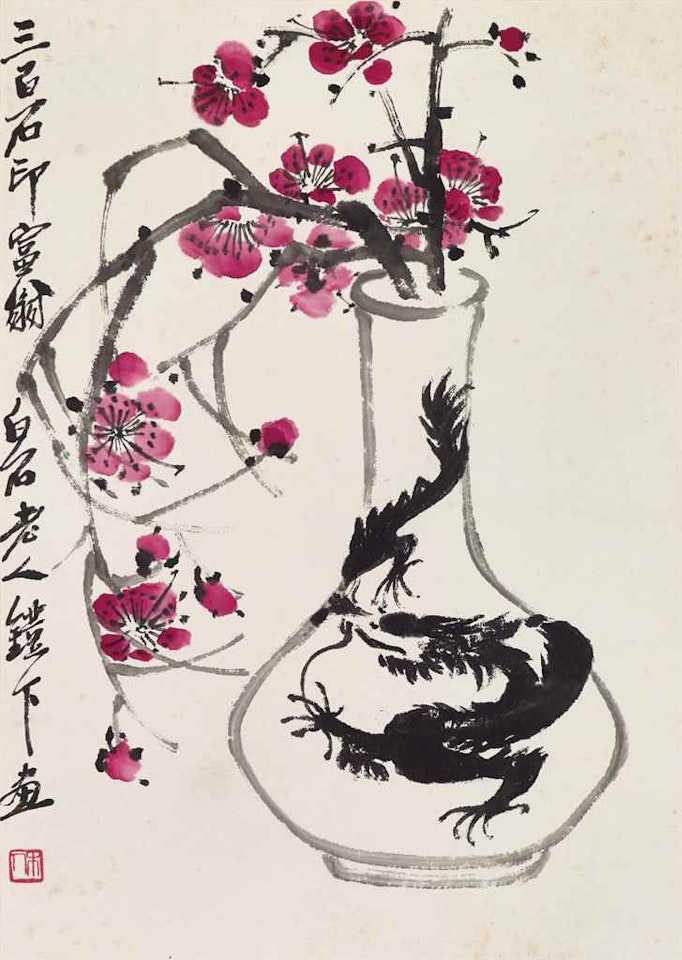 三百石印富翁 白石老人鐙下畫
木人